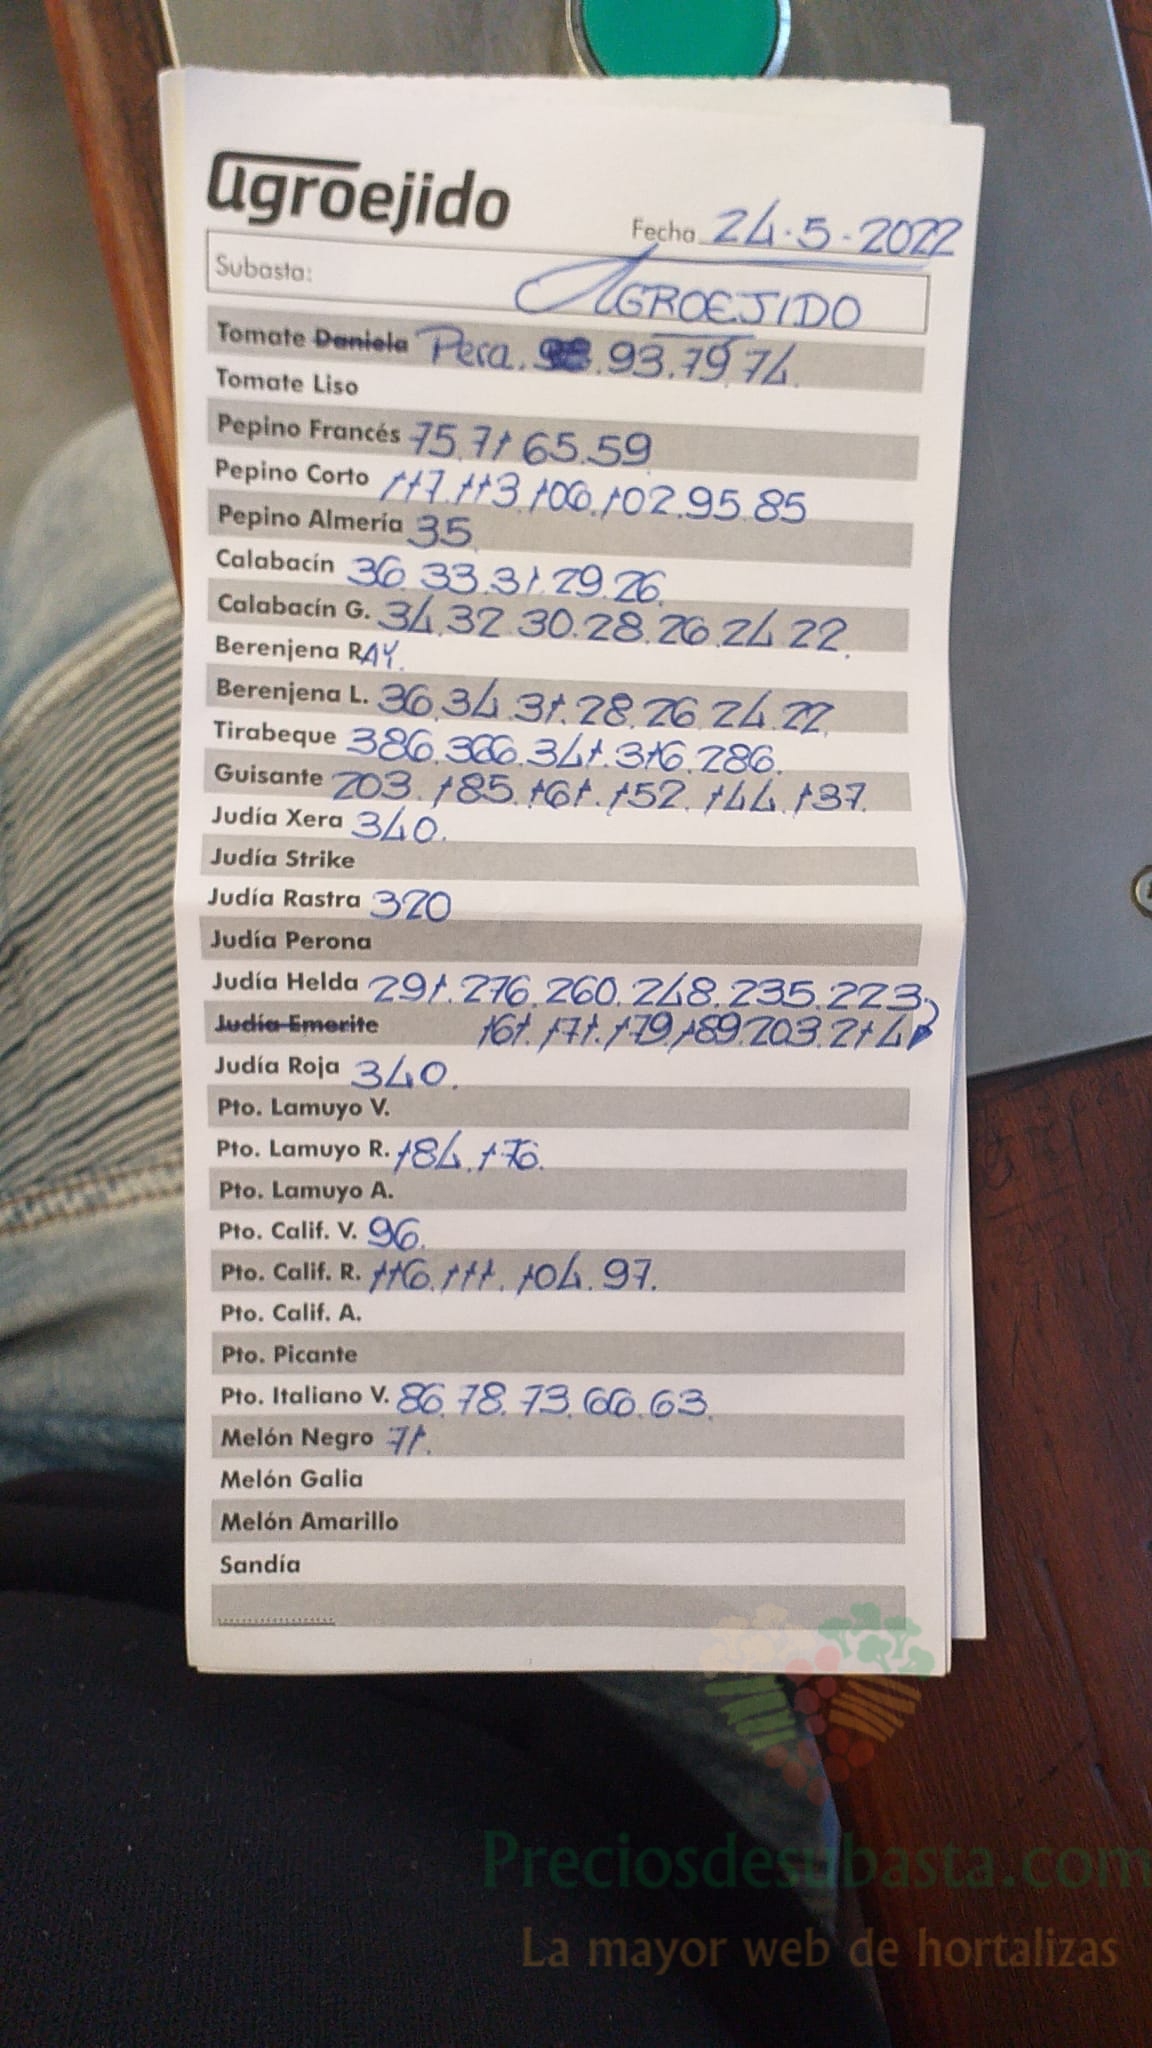 agroejido
Fecha 24.5.2022
Subasta: AGROEJIDO
Tomate Daniela Pera. 93.79.74.
Tomate Liso
Pepino Francés 75.71 65.59
Pepino Corto 117.113.106.102.95.85
Pepino Almería 35
Calabacín 36.33.31.29.26.
Calabacín G. 34.32.30.28.26.24.22.
Berenjena RAY.
Berenjena L. 36.34.31.28.26.24.22.
Tirabeque 386.366.341.316.286.
Guisante 203.185.161.152.144.137.
Judía Xera 340.
Judía Strike
Judía Rastra 320
Judía Perona
Judía Helda 291.276.260.248.235.223
Judía Emerite 161.171.179.189.203.214
Judía Roja 340.
Pto. Lamuyo V.
Pto. Lamuyo R. 184.176.
Pto. Lamuyo A.
Pto. Calif. V. 96.
Pto. Calif. R. 116.111.104.97.
Pto. Calif. A.
Pto. Picante
Pto. Italiano V. 86.78.73.66.63.
Melón Negro 71.
Melón Galia
Melón Amarillo
Sandía
Preciosdesubasta.com
La mayor web de hortalizas